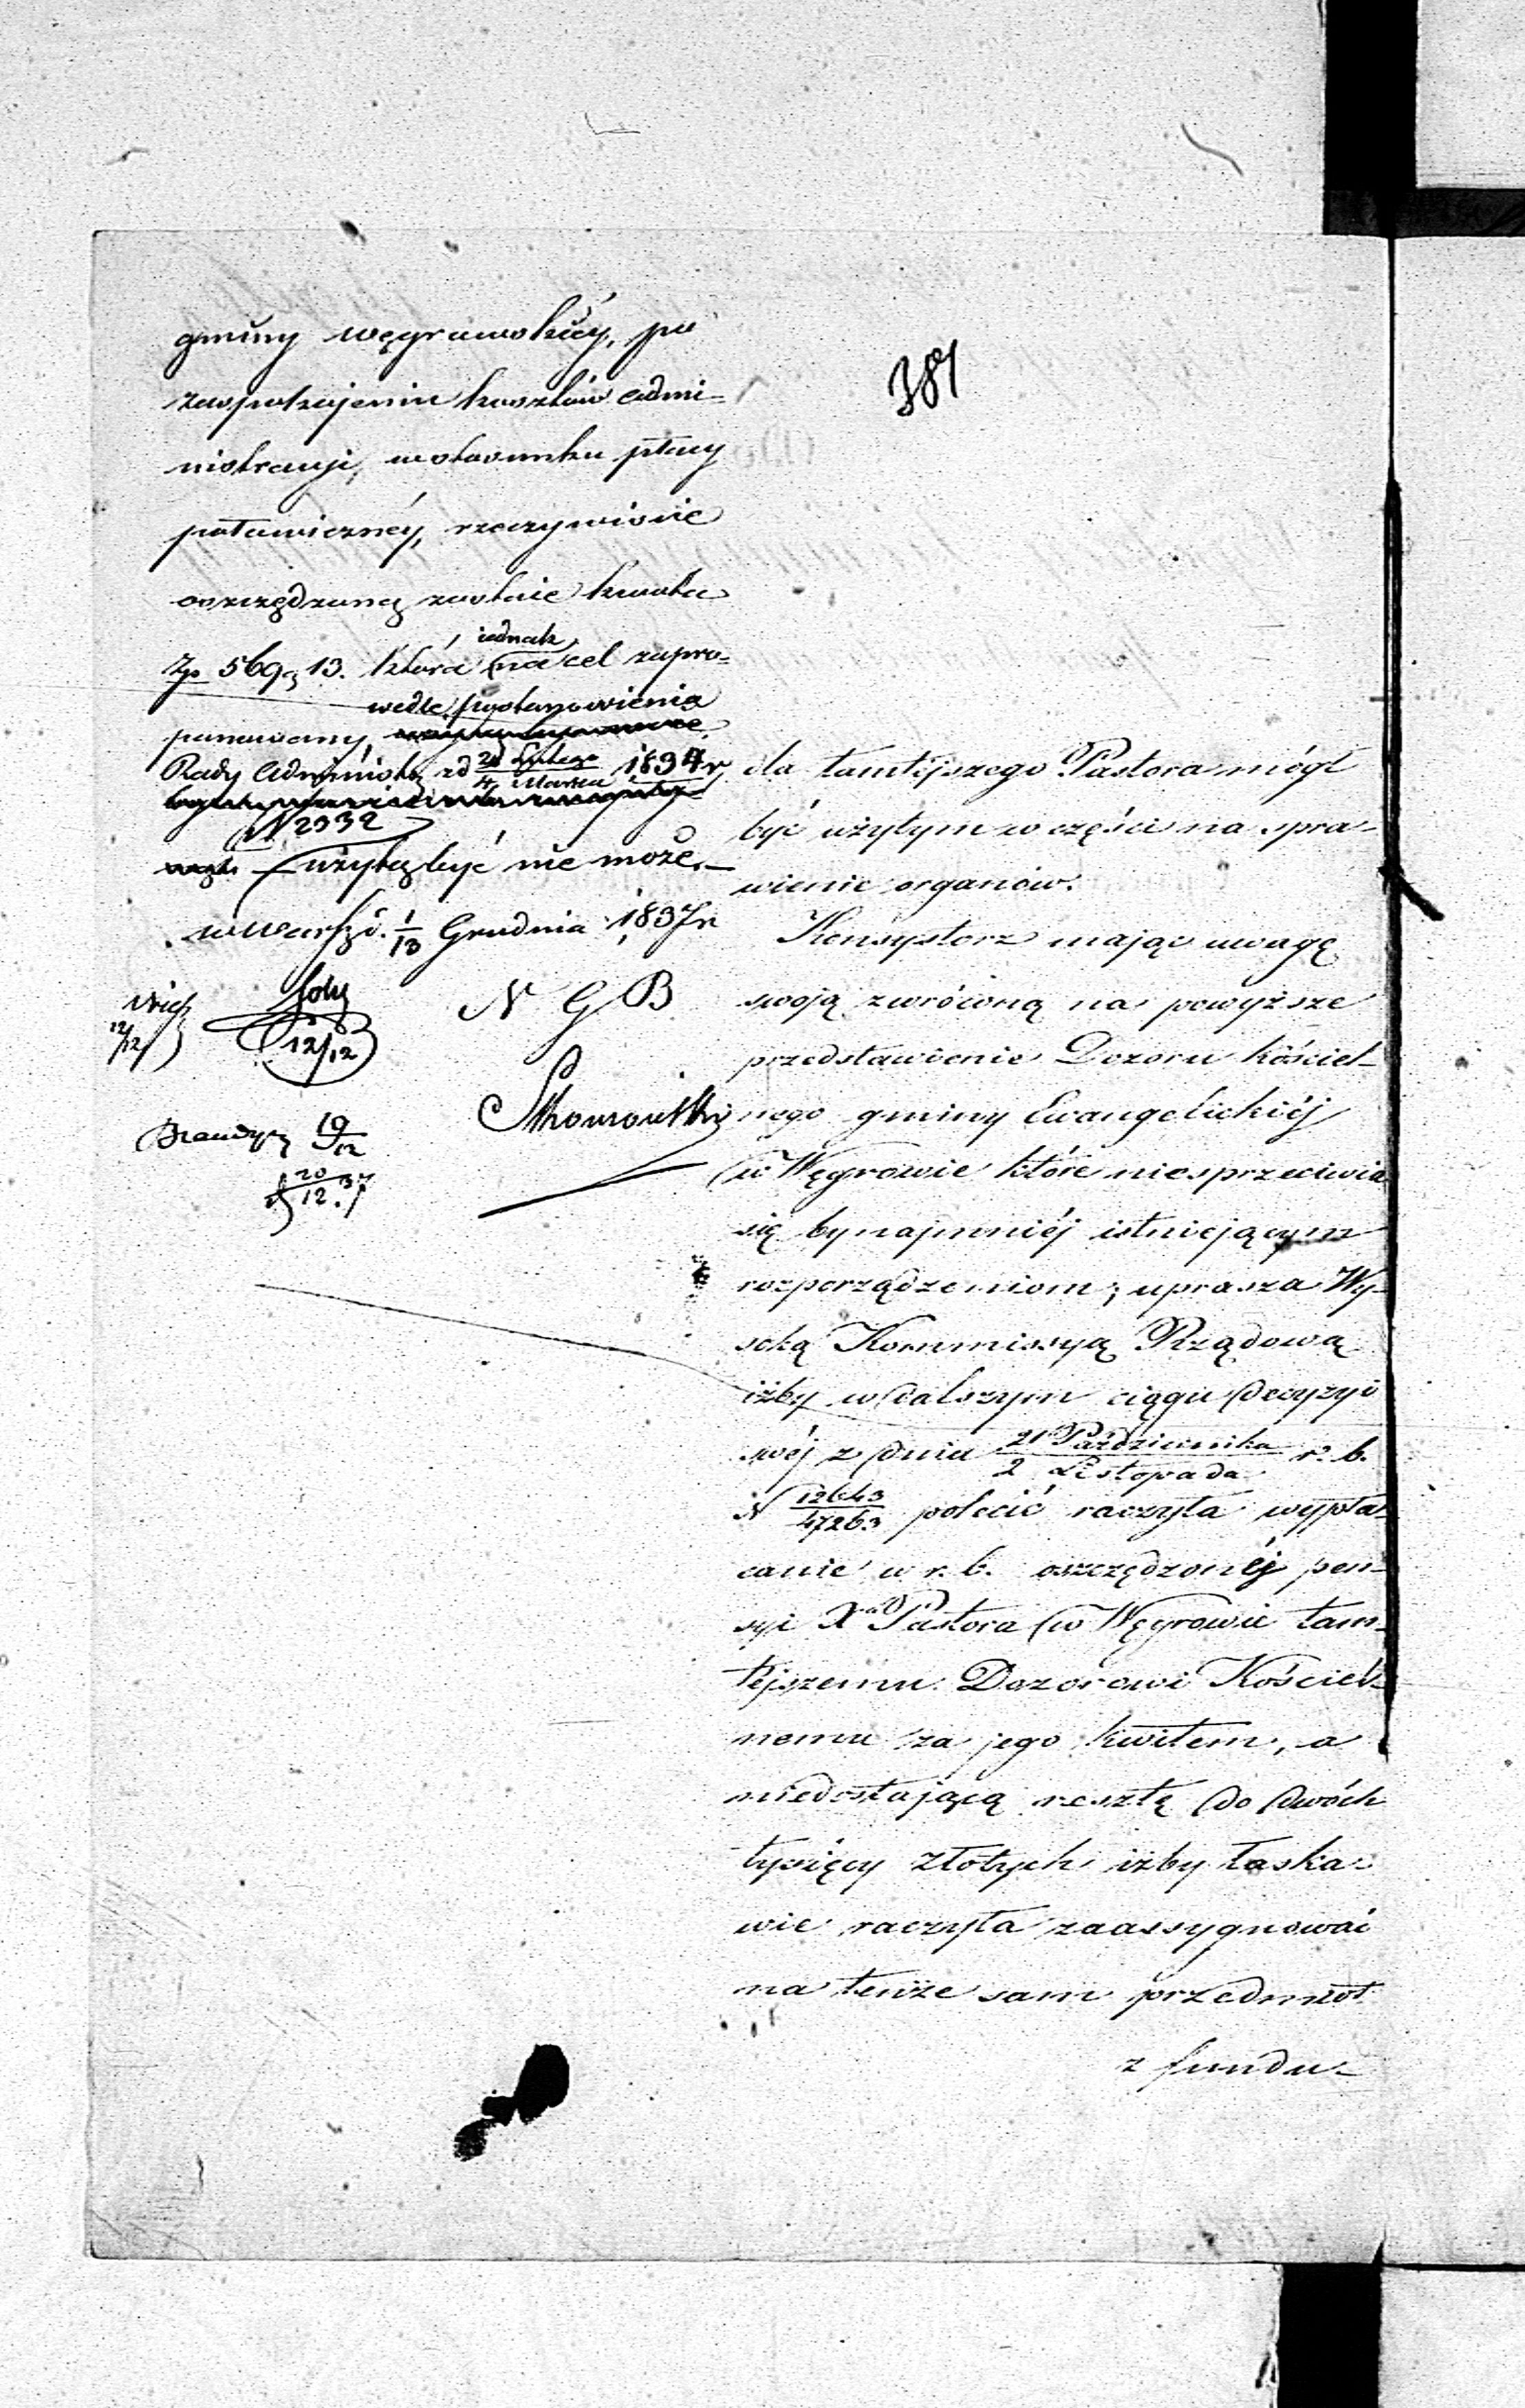 381
gminy węgrowskiéy, po
zaspokojeniu kosztów admi=
nistracyi, w stosunku płacy
połowicznéy, rzeczywiście
oszczędzoną zostaie kwota
Zp 569 g 13. która iednak na cel zapro=
ponowany, wedle postanowienia
Rady Administr. zd 20 Lutego / 4 Marca 1834 r
N 2932
użytą być nie może.—
w Warsz. d. 1/13 Grudnia 1837 r
N G B
12/12
12/12
19/12
20/12 37
dla tamtéjszego Pastora mógł
być użytym w części na spra-
wienie organów.
Konsystorz mając uwagę
swoją zwróconą na powyższe
przedstawienie Dozoru kościel-
nego gminy Ewangelickiéj
w Węgrowie które niesprzeciwia
się bynajmniéj istniejącym
rozporządzeniom; uprasza Wy-
soką Kommissyą Rządową
iżby w dalszym ciągu decyzyi
swéj z dnia 21 Października / 2 Listopada r. b.
N 12643/47263 polecić raczyła wypła-
canie w r. b. oszczędzonéj pen-
syi Xdza Pastora w Węgrowie tam-
tejszemu Dozorowi Kościel-
nemu za jego kwitem, a
niedostającą resztę do dwóch
tysięcy złotych iżby łaska-
wie raczyła zaassygnować
na tenże sam przedmiot
z fundu-